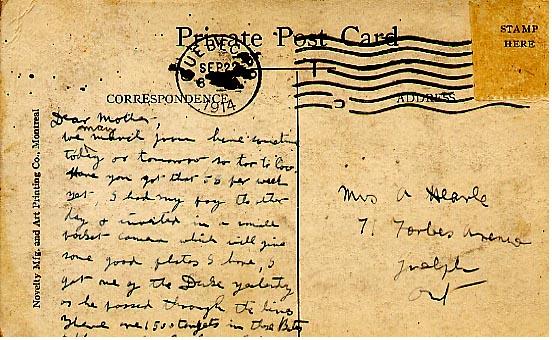 Private Post Card
STAMP
HERE
QUEBEC
SEP 22
6
1914
CORRESPONDENCE
ADDRESS
Novelty Mfg. and Art Printing Co., Montreal
Dear Mother,
may
We march from here sometime
today or tomorrow so far to
Have you got that 5$ per week
yet, I had my pay the other
day & invested in a small
pocket camera which will give
some good plates I hope, I
got one of the Duke yesterday
as he passed through the lines
1500 targets in those Butts
Mrs A Hearle
71 Forbes Avenue
Guelph
Ont